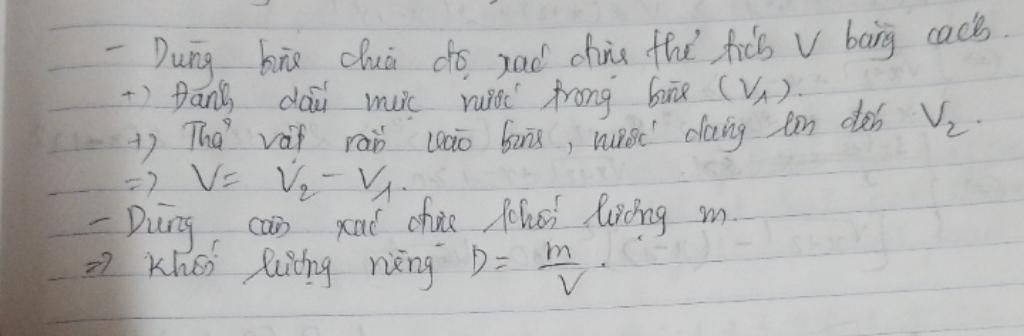 - Dùng bình chia độ xác định thể tích V bằng cách.
+) Đánh dấu mực nước trong bình (V₁).
+) Thả vật rắn vào bình, nước dâng lên đến V₂.
=> V = V₂ - V₁.
- Dùng cân xác định khối lượng m.
=> Khối lượng riêng D = m/V.